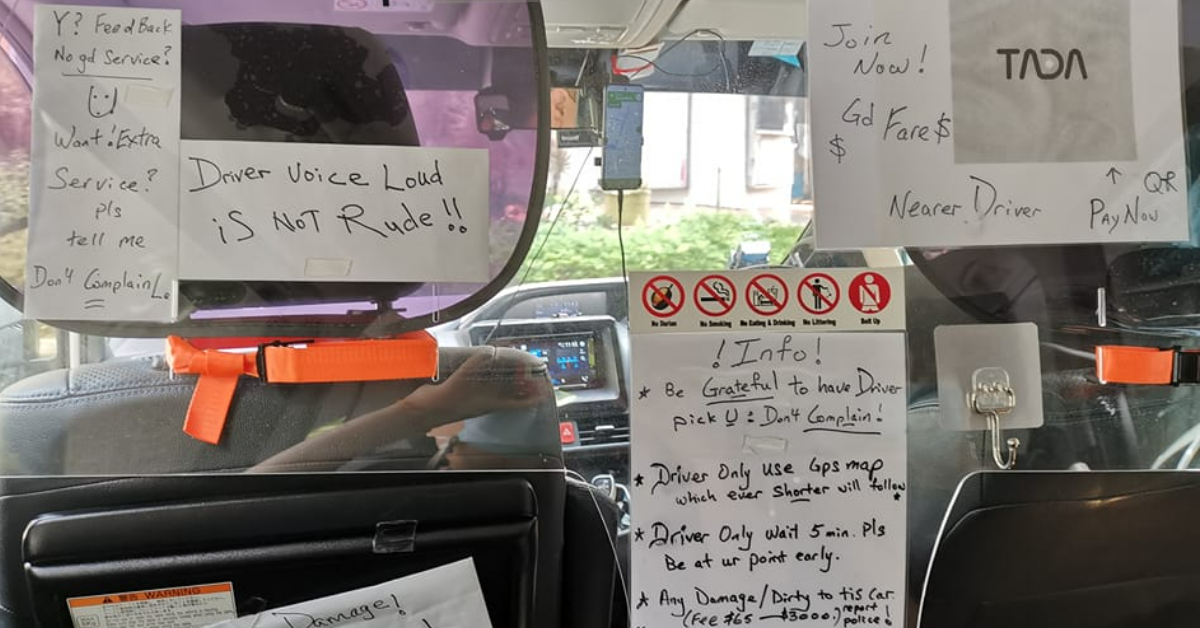 Y? FeedBack
No gd Service?
Want! Extra
Service?
pls
tell me
Don't Complain L.
Driver Voice Loud
iS NOT Rude!!
Join
Now!
Gd Fare $
$
TADA
Nearer Driver
↑ QR
PayNow
No Durian
No Smoking
No Eating & Drinking
No Littering
Belt Up
! Info!
* Be Grateful to have Driver
pick U : Don't Complain!
* Driver Only use Gps map
which ever shorter will follow
* Driver Only wait 5 min. Pls
Be at ur point early.
* Any Damage/Dirty to tis Car.
(Fee $65 — $3000.) report police!
WARNING
Damage!